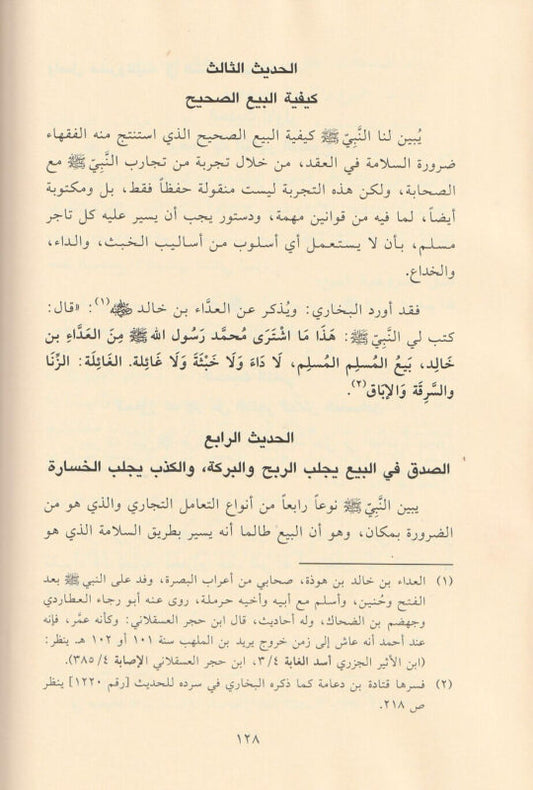 الحديث الثالث
كيفية البيع الصحيح
يُبين لنا النَّبِيّ ﷺ كيفية البيع الصحيح الذي استنتج منه الفقهاء
ضرورة السلامة في العقد، من خلال تجربة من تجارب النَّبِيّ ﷺ مع
الصحابة، ولكن هذه التجربة ليست منقولة حفظاً فقط، بل ومكتوبة
أيضاً، لما فيه من قوانين مهمة، ودستور يجب أن يسير عليه كل تاجر
مسلم، بأن لا يستعمل أي أسلوب من أساليب الخبث، والداء،
والخداع.
فقد أورد البخاري: ويُذكر عن العدَّاء بن خالد رضي الله عنه(١): «قال:
كتب لي النَّبِيّ ﷺ: هَذَا مَا اشْتَرَى مُحمَّد رَسُول الله ﷺ مِنَ العَدَّاءِ بن
خَالِد، بَيعُ المُسلِمِ المُسلِمِ، لَا دَاءَ وَلَا خَبْثَةَ وَلَا غَائِلة. الغَائِلَة: الزِّنَا
والسَّرِقَة وَالإبَاق(٢).
الحديث الرابع
الصدق في البيع يجلب الربح والبركة، والكذب يجلب الخسارة
يبين النَّبِيّ ﷺ نوعاً رابعاً من أنواع التعامل التجاري والذي هو من
الضرورة بمكان، وهو أن البيع طالما أنه يسير بطريق السلامة الذي هو
(١) العداء بن خالد بن هوذة، صحابي من أعراب البصرة، وفد على النبي ﷺ بعد
الفتح وحُنين، وأسلم مع أبيه وأخيه حرملة، روى عنه أبو رجاء العطاردي
وجهضم بن الضحاك، وله أحاديث، قال ابن حجر العسقلاني: وكأنه عمَّر، فإنه
عند أحمد أنه عاش إلى زمن خروج يريد بن الملهب سنة ١٠١ أو ١٠٢ هـ. ينظر:
(ابن الأثير الجزري أسد الغابة ٣/٤، ابن حجر العسقلاني الإصابة ٣٨٥/٤).
(٢) فسرها قتادة بن دعامة كما ذكره البخاري في سرده للحديث [رقم ١٢٢٠] ينظر
ص ٢١٨.
١٢٨